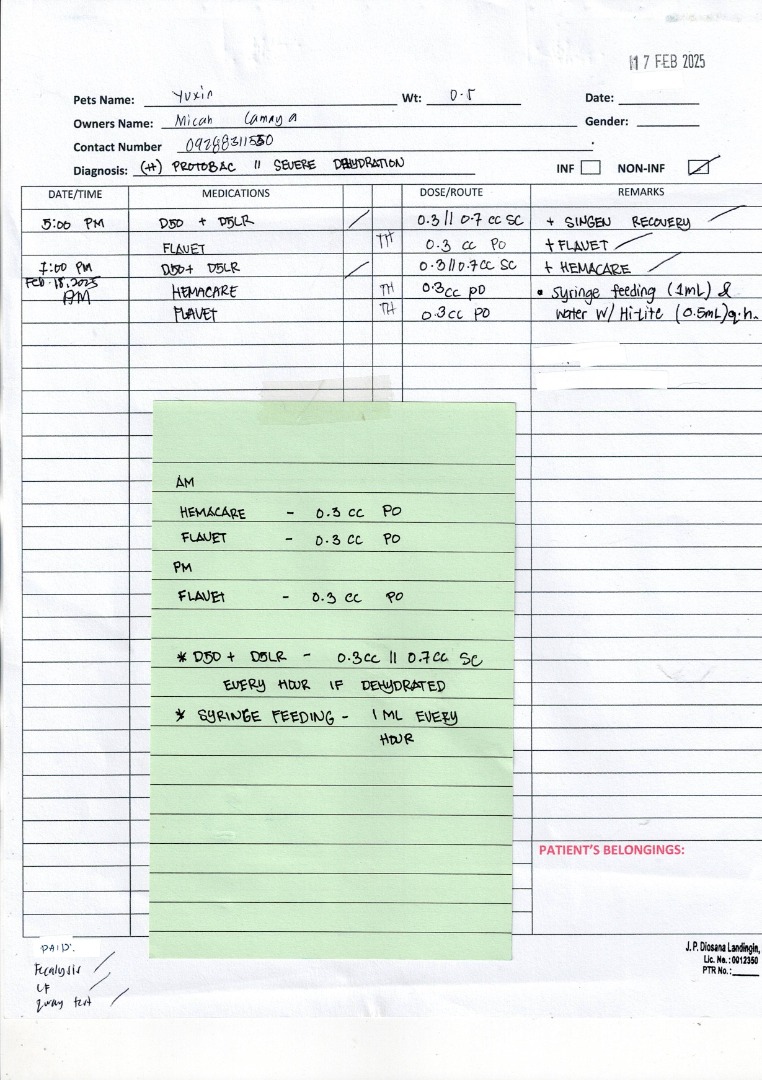 17 FEB 2025
Pets Name: Yuxin Wt: 0.5 Date:
Owners Name: Micah Gender:
Contact Number
Diagnosis: (+) PROTOBAC || SEVERE DEHYDRATION INF NON-INF
DATE/TIME MEDICATIONS DOSE/ROUTE REMARKS
5:00 PM D50 + D5LR 0.3 || 0.7 cc SC + SINGEN RECOVERY
FLAVET TH 0.3 cc PO + FLAVET
7:00 PM D50 + D5LR 0.3 || 0.7 cc SC + HEMACARE
Feb. 18, 2025
AM HEMACARE TH 0.3cc PO • syringe feeding (1mL) &
FLAVET TH 0.3cc PO water w/ Hi-Lite (0.5mL) q.h.
AM
HEMACARE - 0.3 cc PO
FLAVET - 0.3 cc PO
PM
FLAVET - 0.3 cc PO
* D50 + D5LR - 0.3cc || 0.7cc SC
EVERY HOUR IF DEHYDRATED
* SYRINGE FEEDING - 1 ML EVERY
HOUR
PATIENT'S BELONGINGS:
PAID:
Fecalysis
CF
2way test
J. P. Diosana Landingin,
Lic. No.: 0012350
PTR No.: